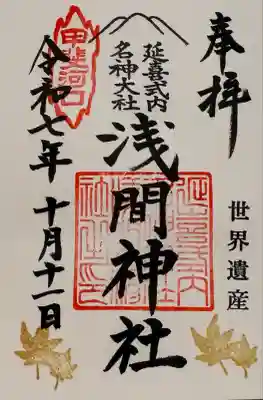 奉拝
世界遺産
延喜式内
名神大社
浅間神社
甲斐河口
令和七年 十月十一日